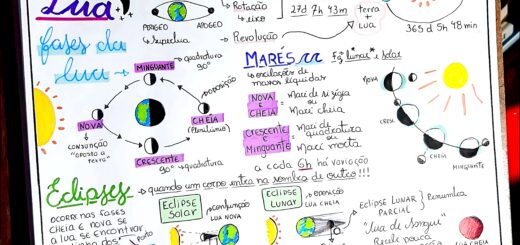 Lua
PERIGEO
APOGEO
→ superlua
→ Rotação
→ eixo
27d 7h 43m
→ Revolução
terra + lua
365 d 5h 48 min
fases da lua
MINGUANTE → quadratura 90°
OPOSIÇÃO
NOVA
CONJUNÇÃO
"oposto a terra"
CHEIA
(Plenilúnio)
CRESCENTE
90° → quadratura
MARÉS
Fg lunar e solar
→ oscilações de massas líquidas
NOVA E CHEIA = Maré de sizígia ou Maré cheia
Crescente e Minguante = Maré de quadratura ou Maré morta
a cada 6h há variação
NOVA
CRESC
CHEIA
MINGUANTE
Eclipses
→ quando um corpo entra na sombra de outro!!!
OCORRE NAS FASES CHEIA E NOVA SE A LUA SE ENCONTRAR
Eclipse Solar → conjunção LUA NOVA
Eclipse Lunar → oposição LUA CHEIA
ECLIPSE LUNAR PARCIAL } Penumbra
"lua de sangue"
Recebe pouca
LUA CHEIA